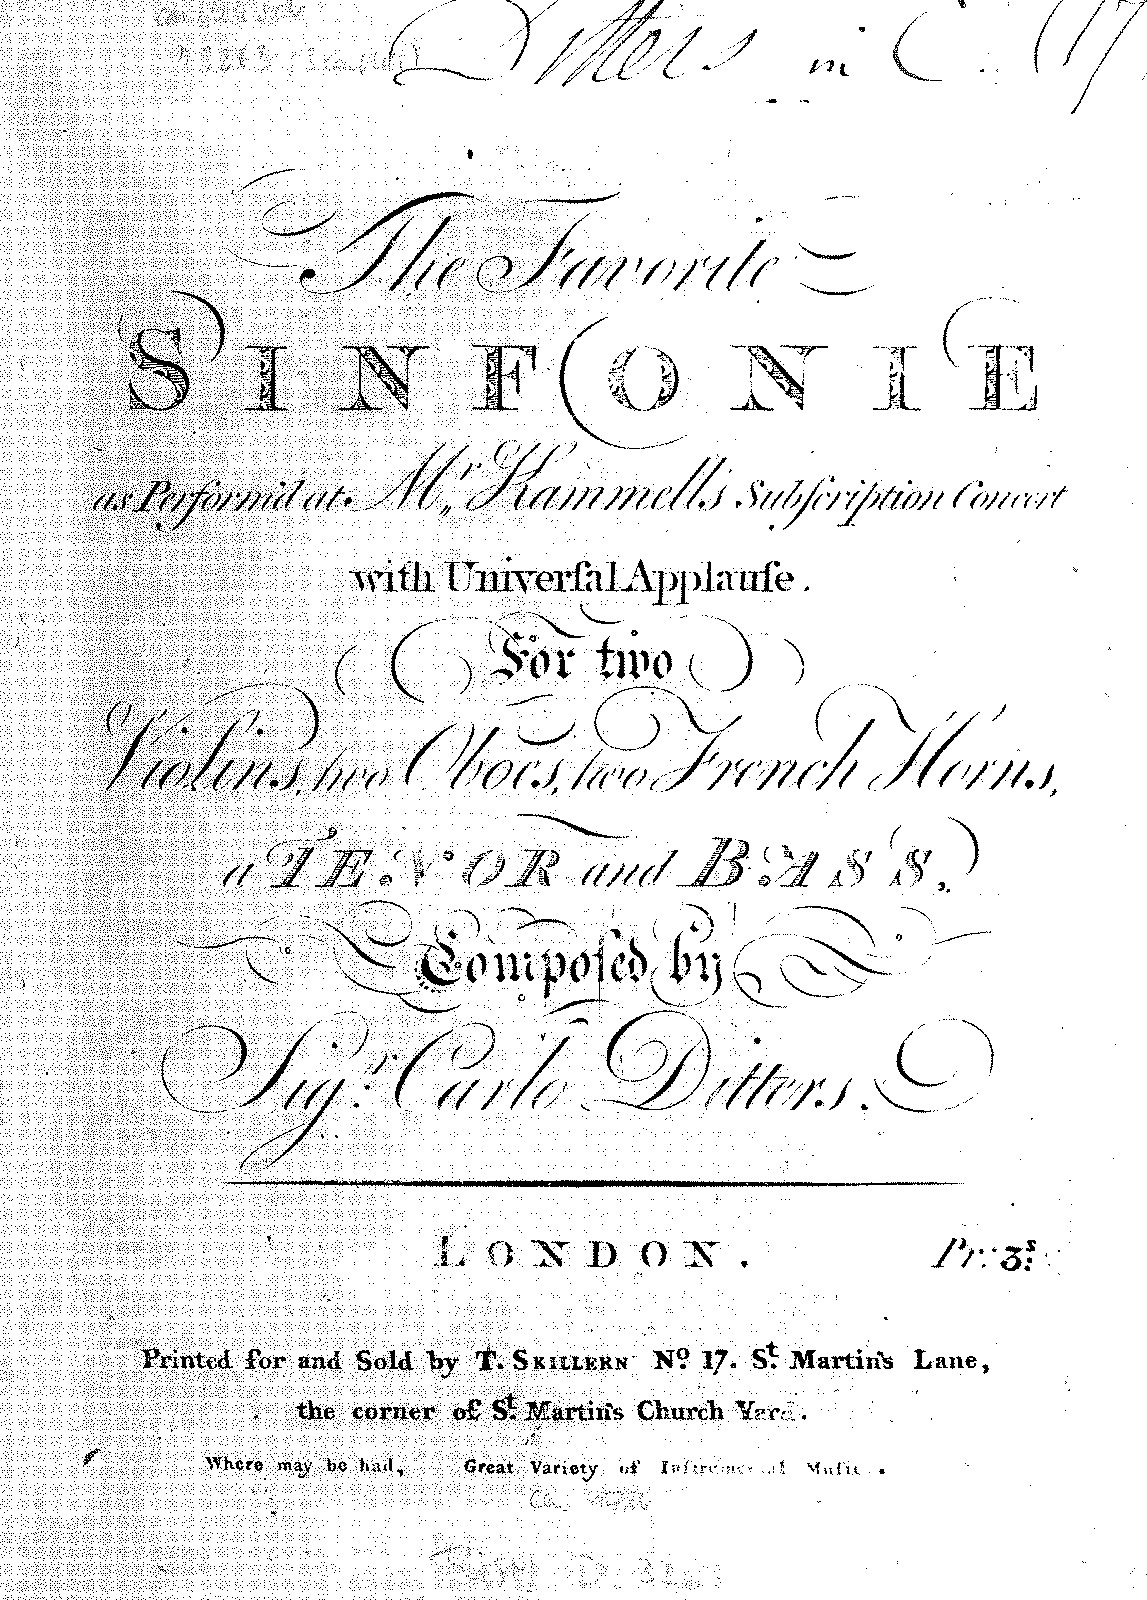 Ditters in C. (17
The Favorite
SINFONIE
as Perform'd at Mr. Kammell's Subſcription Concert
with Univerſal Applauſe.
For two
Violins, two Oboes, two French Horns,
a TENOR and BASS.
Compoſed by
Sigr. Carlo Ditters.
LONDON. Pr: 3s:
Printed for and Sold by T. SKILLERN No. 17. St. Martin's Lane,
the corner of St. Martin's Church Yard.
Where may be had, Great Variety of Inſtrumental Muſic.